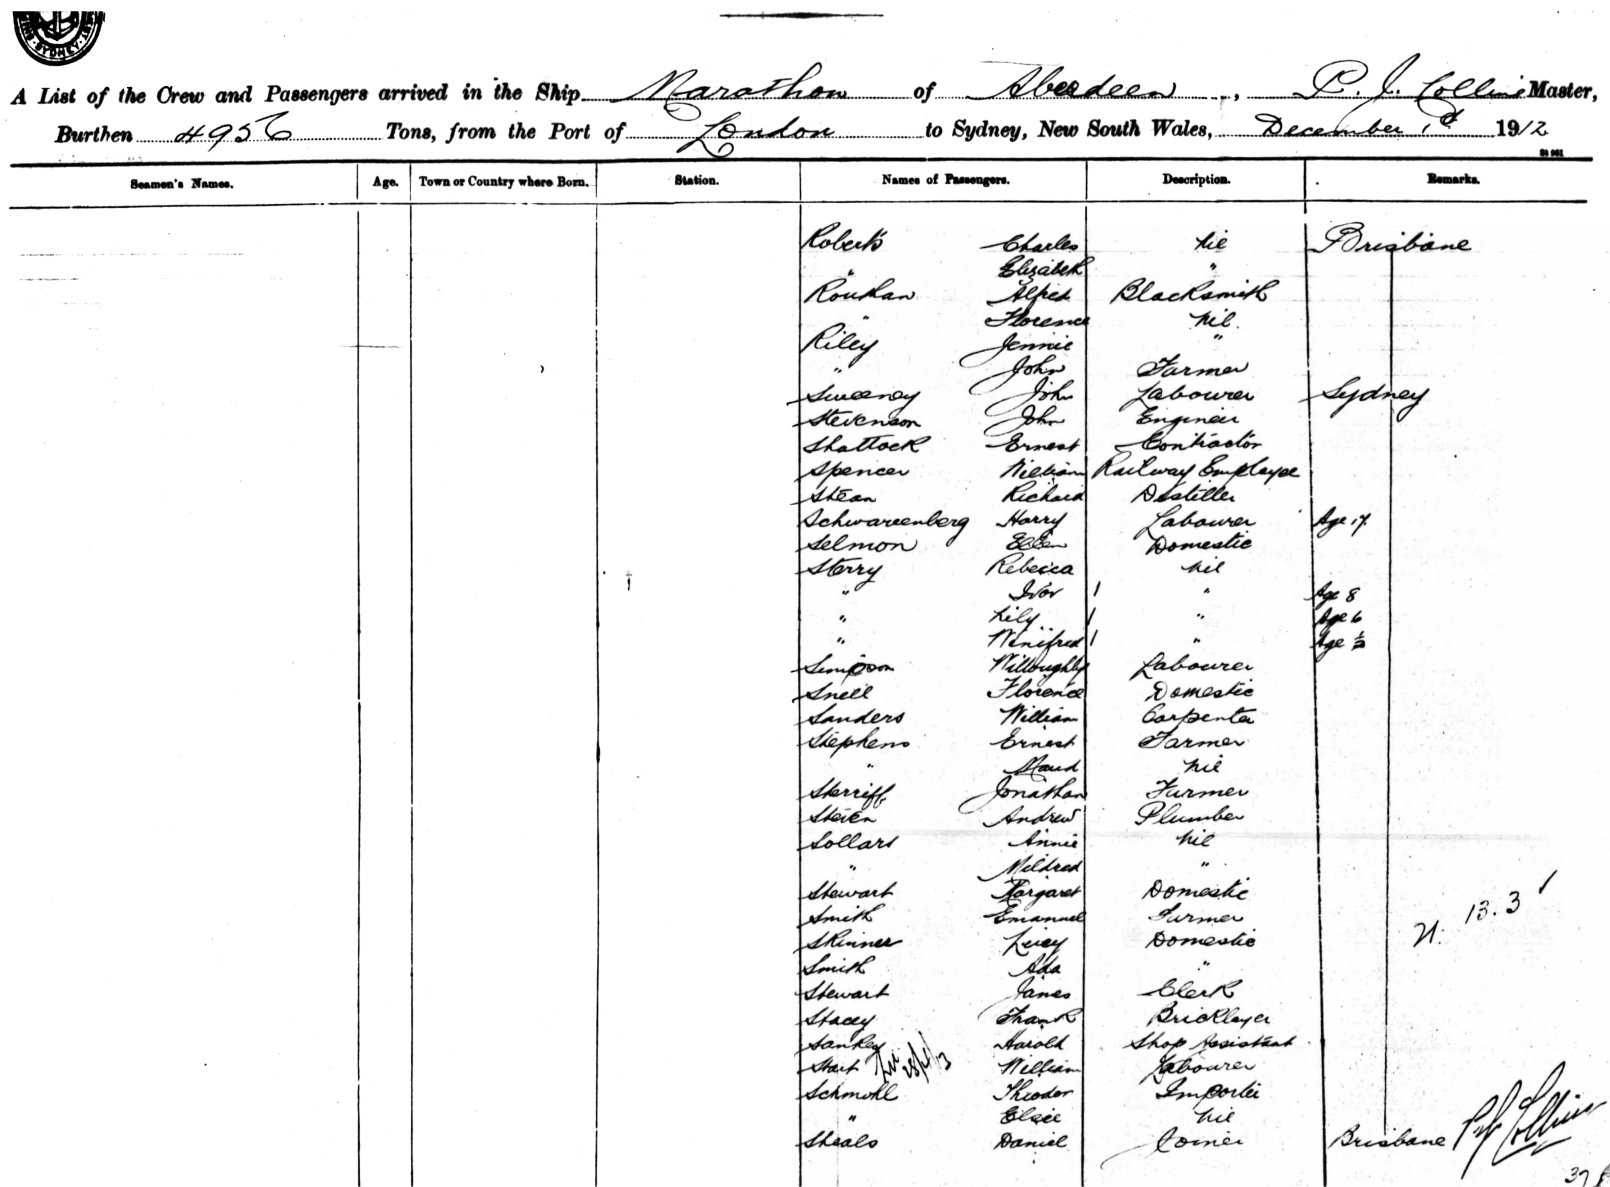 SYDNEY
A List of the Crew and Passengers arrived in the Ship Marathon of Aberdeen, P. J. Collins Master,
Burthen 4956 Tons, from the Port of London to Sydney, New South Wales, December 1st 1912
Seamen's Names. Age. Town or Country where Born. Station. Names of Passengers. Description. Remarks.
Roberts Charles Nil Brisbane
" Elizabeth "
Rouhan Alfred Blacksmith
" Florence Nil.
Riley Jennie "
" John Farmer
Sweeney John Labourer Sydney
Stevenson John Engineer
Shattock Ernest Contractor
Spencer William Railway Employee
Stean Richard Distiller
Schwarzenberg Harry Labourer Age 17
Selmon Ellen Domestic
Sterry Rebecca Nil
" Ivor 1 " Age 8
" Lily 1 " Age 6
" Winifred 1 " Age ½
Simpson Willoughby Labourer
Snell Florence Domestic
Sanders William Carpenter
Stephens Ernest Farmer
" Maud Nil
Sherriff Jonathan Farmer
Steven Andrew Plumber
Sollars Annie Nil
" Mildred "
Stewart Margaret Domestic
Smith Emanuel Farmer
Skinner Lucy Domestic
Smith Ada "
Stewart James Clerk
Stacey Frank Bricklayer
Sankey Harold Shop Assistant
Start William Labourer
Schmohl Theodor Importer
" Elsie Nil
Sheals Daniel Joiner Brisbane
13.3
P J Collins